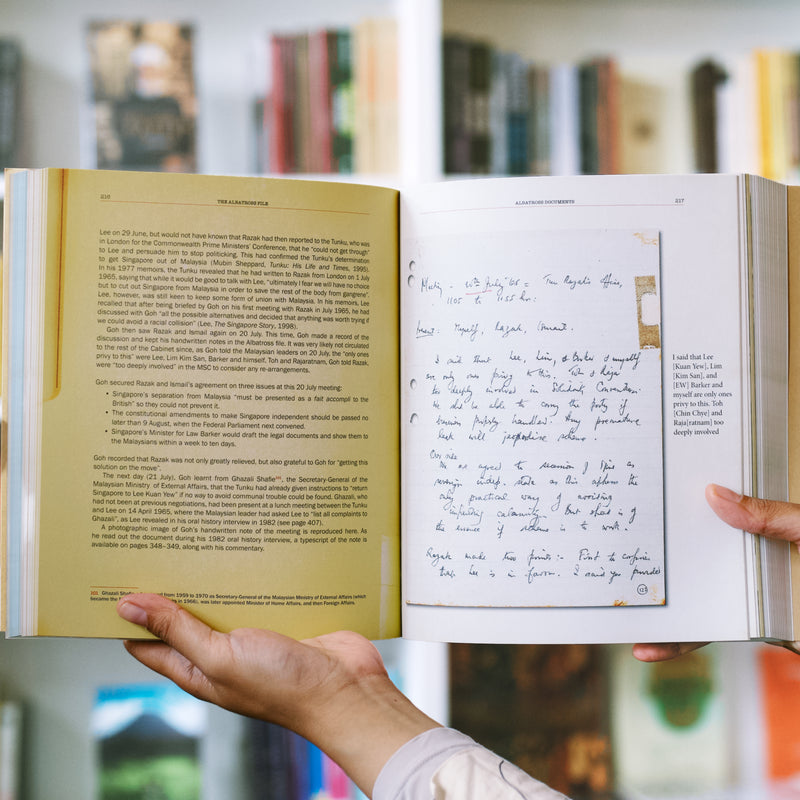 216
THE ALBATROSS FILE
Lee on 29 June, but would not have known that Razak had then reported to the Tunku, who was
in London for the Commonwealth Prime Ministers' Conference, that he "could not get through"
to Lee and persuade him to stop politicking. This had confirmed the Tunku's determination
to get Singapore out of Malaysia (Mubin Sheppard, Tunku: His Life and Times, 1995).
In his 1977 memoirs, the Tunku revealed that he had written to Razak from London on 1 July
1965, saying that while it would be good to talk with Lee, "ultimately I fear we will have no choice
but to cut out Singapore from Malaysia in order to save the rest of the body from gangrene".
Lee, however, was still keen to keep some form of union with Malaysia. In his memoirs, Lee
recalled that after being briefed by Goh on his first meeting with Razak in July 1965, he had
discussed with Goh "all the possible alternatives and decided that anything was worth trying if
we could avoid a racial collision" (Lee, The Singapore Story, 1998).
Goh then saw Razak and Ismail again on 20 July. This time, Goh made a record of the
discussion and kept his handwritten notes in the Albatross file. It was very likely not circulated
to the rest of the Cabinet since, as Goh told the Malaysian leaders on 20 July, the "only ones
privy to this" were Lee, Lim Kim San, Barker and himself. Toh and Rajaratnam, Goh told Razak,
were "too deeply involved" in the MSC to consider any re-arrangements.
Goh secured Razak and Ismail's agreement on three issues at this 20 July meeting:
• Singapore's separation from Malaysia "must be presented as a fait accompli to the
British" so they could not prevent it.
• The constitutional amendments to make Singapore independent should be passed no
later than 9 August, when the Federal Parliament next convened.
• Singapore's Minister for Law Barker would draft the legal documents and show them to
the Malaysians within a week to ten days.
Goh recorded that Razak was not only greatly relieved, but also grateful to Goh for "getting this
solution on the move".
The next day (21 July), Goh learnt from Ghazali Shafie, the Secretary-General of the
Malaysian Ministry of External Affairs, that the Tunku had already given instructions to "return
Singapore to Lee Kuan Yew" if no way to avoid communal trouble could be found. Ghazali, who
had not been at previous negotiations, had been present at a lunch meeting between the Tunku
and Lee on 14 April 1965, where the Malaysian leader had asked Lee to "list all complaints to
Ghazali", as Lee revealed in his oral history interview in 1982 (see page 407).
A photographic image of Goh's handwritten note of the meeting is reproduced here. As
he read the document during his 1982 oral history interview, a typescript of the note is
available on pages 348–349, along with his commentary.
Ghazali Shafie from 1959 to 1970 as Secretary-General of the Malaysian Ministry of External Affairs (which
became the in 1966), was later appointed Minister of Home Affairs, and then Foreign Affairs.
ALBATROSS DOCUMENTS
217
Meeting - 20th July '65 - Tun Razak's Office,
1105 to 1155 hrs.
Present: Myself, Razak, Ismail.
I said that Lee, Lim, & Barker & myself
are only ones privy to this. Toh & Raja
too deeply involved in Solidarity Convention.
be able to carry the party if
business properly handled. Any premature
leak will jeopardise scheme.
Our side
We are agreed to secession of S'pore as
sovereign indep. state as this appears the
only practical way of avoiding
impending calamity. But speed is of
the essence if scheme is to work.
Razak made two points:- First to confirm
that Lee is in favour. I said yes provided
127
I said that Lee
[Kuan Yew], Lim
[Kim San], and
[EW] Barker and
myself are only ones
privy to this. Toh
[Chin Chye] and
Raja[ratnam] too
deeply involved